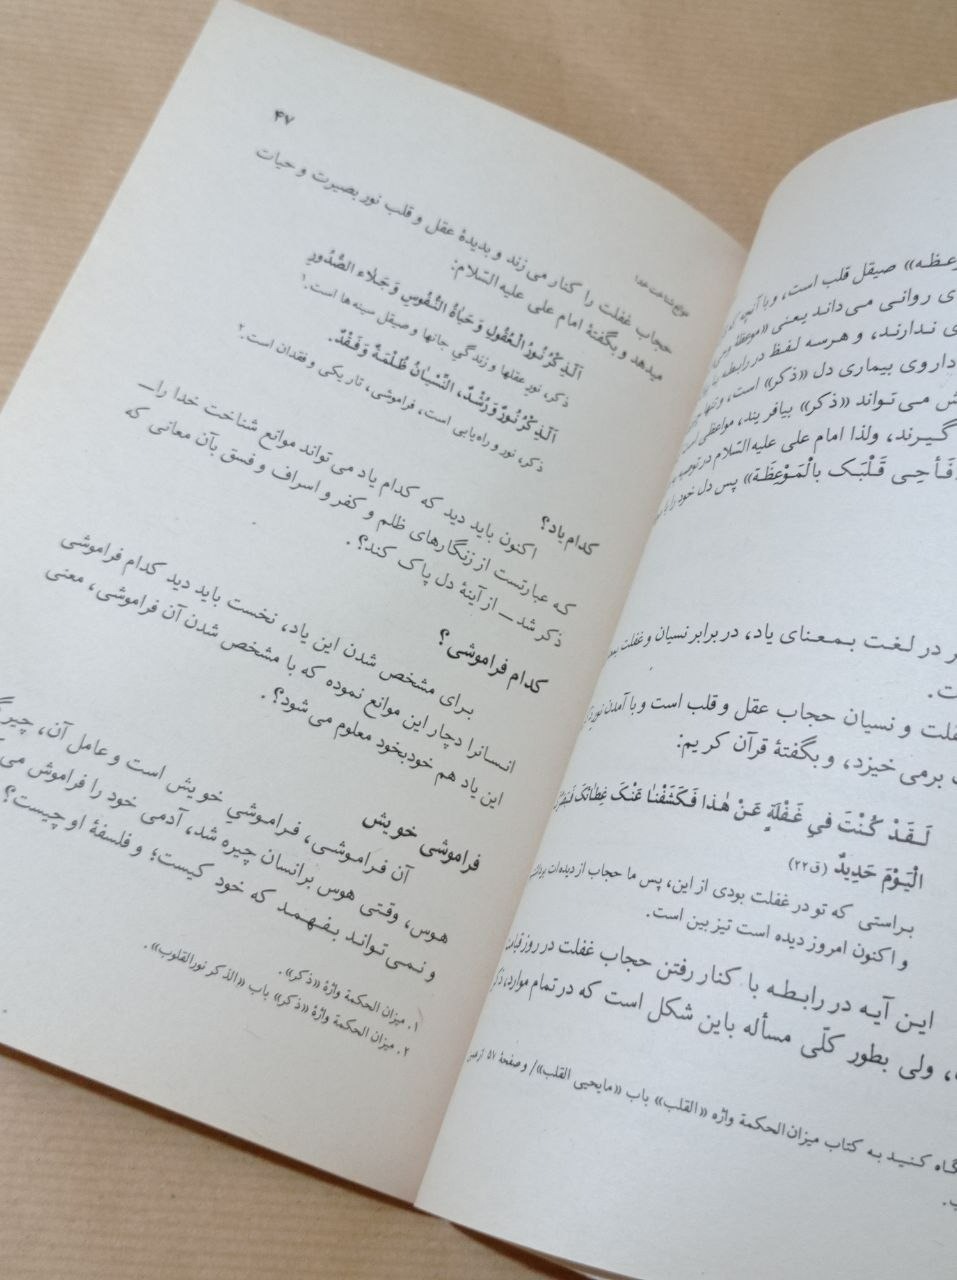 «موعظه» صیقل قلب است، و با آنچه که
ی روانی می‌داند یعنی «موعظه
ی ندارند، و هر سه لفظ در رابطه با
داروی بیماری دل «ذکر» است، و تنها
ش می‌تواند «ذکر» بیافریند، مواعظی است
گیرند، ولذا امام علی علیه السّلام در توصیه
فَأحیِ قَلْبَکَ بِالْمَوْعِظَة» پس دل خود را با
در لغت بمعنای یاد، در برابر نسیان و غفلت
ت.
فلت و نسیان حجاب عقل و قلب است و با آمدن نور
برمی خیزد، و بگفتهٔ قرآن کریم:
لَقَدْ کُنْتَ فی غَفْلَةٍ عَنْ هٰذا فَکَشَفْنا عَنْکَ غِطائَکَ
الْیَوْمَ حَدیدٌ (ق۲۲)
براستی که تو در غفلت بودی از این، پس ما حجاب از دیده‌ات
و اکنون امروز دیده است تیزبین است.
این آیه در رابطه با کنار رفتن حجاب غفلت در روز قیامت
، ولی بطور کلّی مسأله باین شکل است که در تمام موارد، ذکر
گاه کنید به کتاب میزان الحکمة واژه «القلب» باب «مایحیی القلب»/ و صفحهٔ ۵۷ از همین
ب.
موانع شناخت خدا
۴۷
حجاب غفلت را کنار می زند و بدیدهٔ عقل و قلب نور بصیرت و حیات
میدهد و بگفتهٔ امام علی علیه السّلام:
اَلذِّکْرُ نُورُ الْعُقُولِ وَ حَیاةُ النُّفُوسِ وَ جَلاءُ الصُّدُورِ
ذکر، نور عقلها و زندگی جانها و صیقل سینه‌ها است.۱
اَلذِّکْرُ نُورٌ وَ رُشْدٌ، النِّسْیانُ ظُلْمَةٌ وَ فَقْدٌ.
ذکر، نور و راه‌یابی است، فراموشی، تاریکی و فقدان است.۲
کدام یاد؟
اکنون باید دید که کدام یاد می تواند موانع شناخت خدا را—
که عبارتست از زنگارهای ظلم و کفر و اسراف و فسق بآن معانی که
ذکر شد— از آینهٔ دل پاک کند؟.
کدام فراموشی؟
برای مشخص شدن این یاد، نخست باید دید کدام فراموشی
انسانرا دچار این موانع نموده که با مشخص شدن آن فراموشی، معنی
این یاد هم خودبخود معلوم می شود؟.
فراموشی خویش
آن فراموشی، فراموشیِ خویش است و عامل آن،
هوس، وقتی هوس برانسان چیره شد، آدمی خود را فراموش
و نمی تواند بفهمد که خود کیست؛ و فلسفهٔ او چیست؟
۱. میزان الحکمة واژهٔ «ذکر».
۲. میزان الحکمة واژهٔ «ذکر» باب «الذکر نورالقلوب».